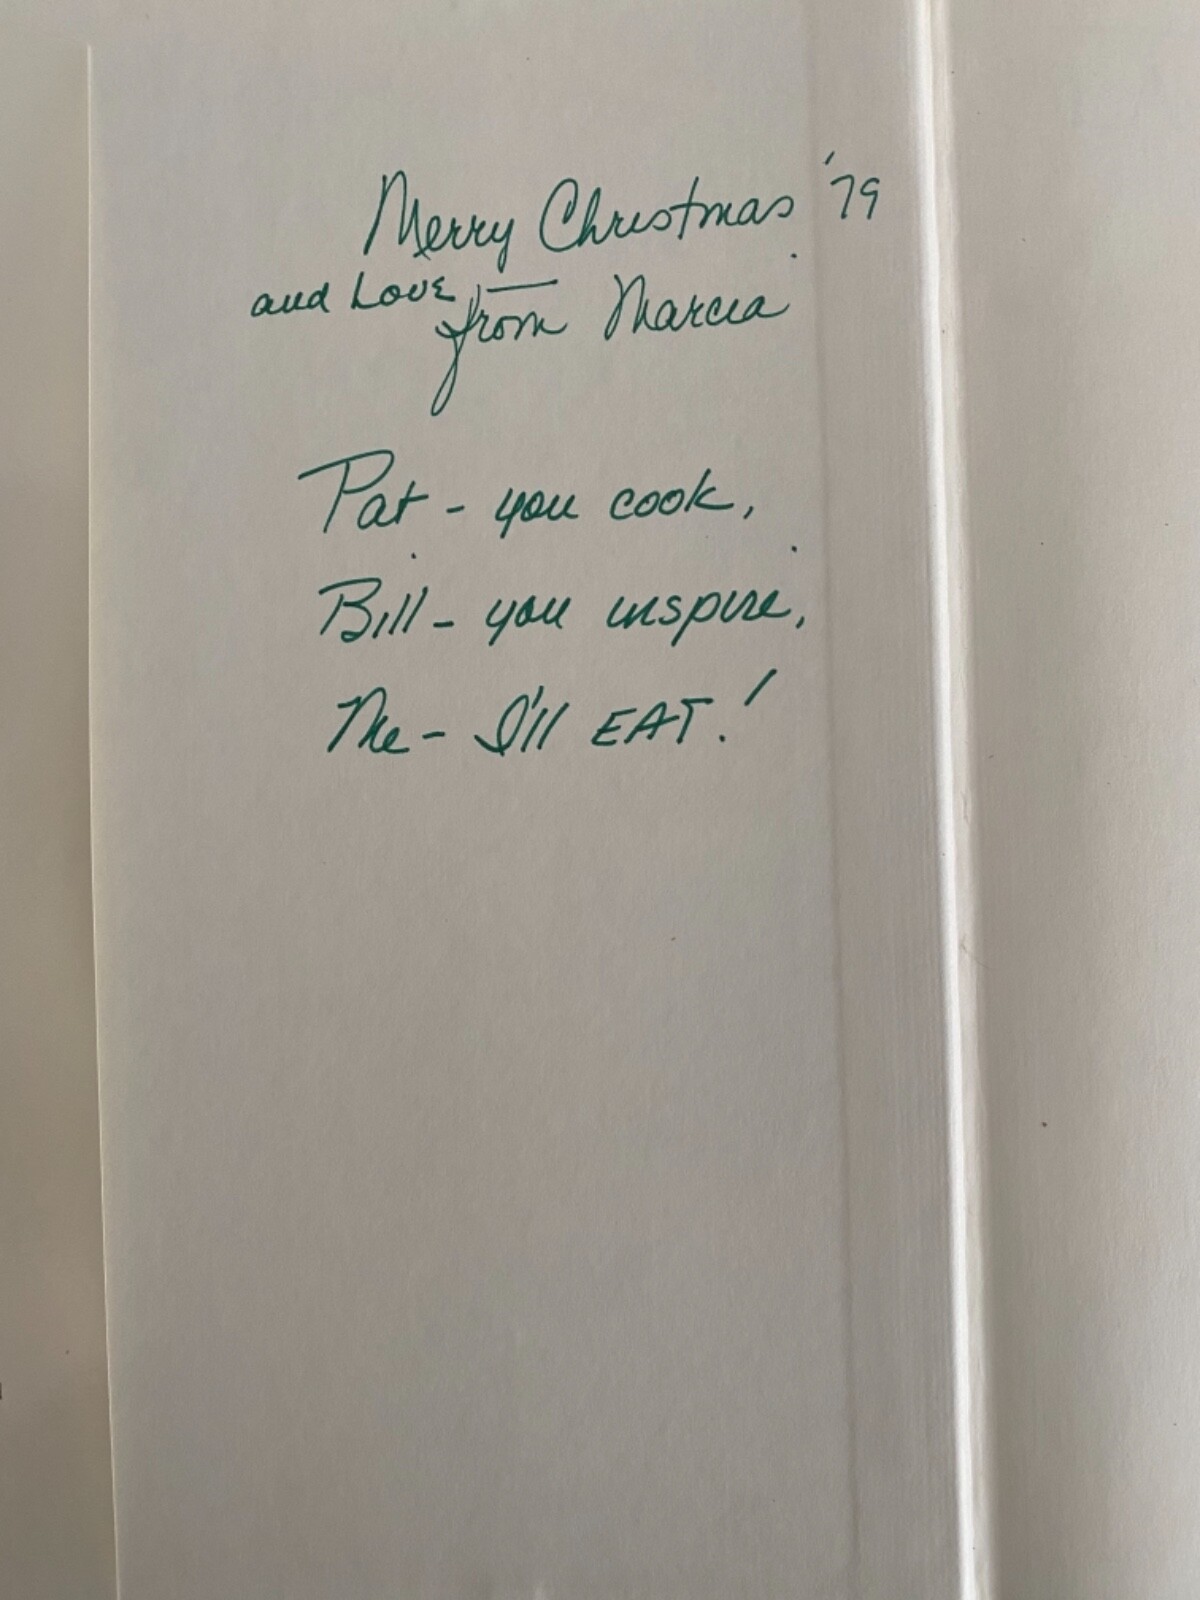 Merry Christmas '79
and Love —
from Marcia
Pat - you cook,
Bill - you inspire,
Me - I'll EAT!